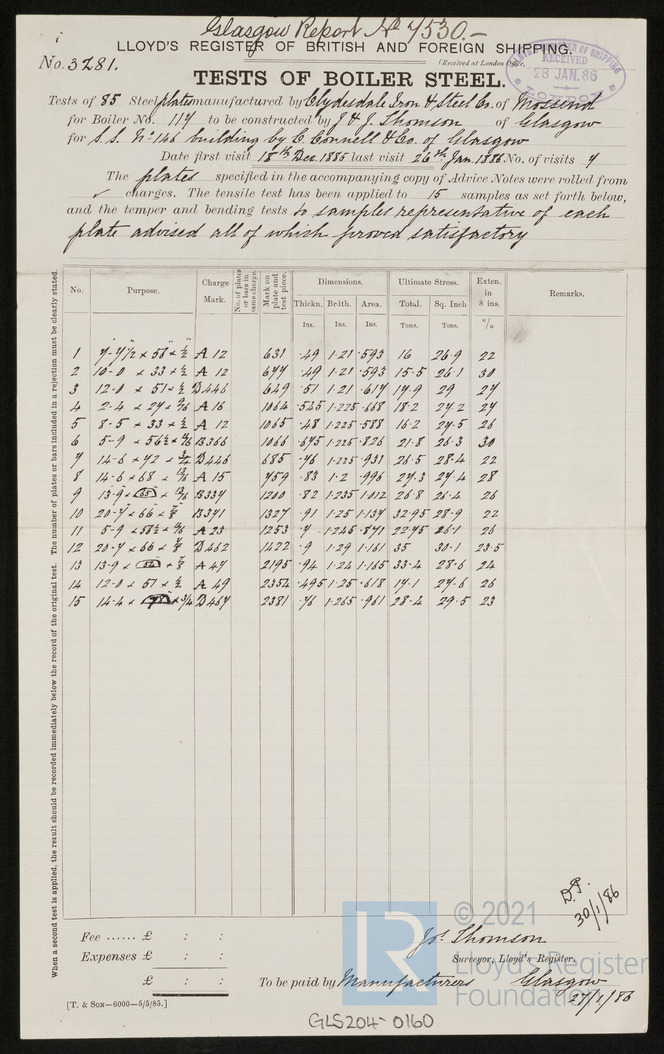 Glasgow Report No 7530.-
LLOYD'S REGISTER OF BRITISH AND FOREIGN SHIPPING.
No. 3281.
(Received at London Office,
RECEIVED
28 JAN. 86
LONDON
TESTS OF BOILER STEEL.
Tests of 85 Steel plates manufactured by Clydesdale Iron & Steel Co. of Mossend
for Boiler No. 117 to be constructed by J & J. Thomson of Glasgow
for S.S. No 146 building by C. Connell & Co. of Glasgow
Date first visit 18th Dec. 1885 last visit 26th Jan. 1886 No. of visits 7
The plates specified in the accompanying copy of Advice Notes were rolled from
✓ charges. The tensile test has been applied to 15 samples as set forth below,
and the temper and bending tests to samples representative of each
plate advised all of which proved satisfactory
When a second test is applied, the result should be recorded immediately below the record of the original test. The number of plates or bars included in a rejection must be clearly stated.
No. Purpose. Charge Mark. No. of plates or bars in same charge. Mark on plate and test piece. Dimensions. Ultimate Stress. Exten. in 8 ins. Remarks.
Thickn. Brdth. Area. Total. Sq. Inch
Ins. Ins. Ins. Tons. Tons. %
1 7-7½ × 56 × ½ A 12 631 .49 1.21 .593 16 26.9 22
2 10-0 × 33 × ½ A 12 677 .49 1.21 .593 15.5 26.1 30
3 12-0 × 51 × ½ D446 649 .51 1.21 .617 17.9 29 27
4 2-4 × 27 × 9/16 A 16 1064 .545 1.225 .668 18.2 27.2 27
5 8-5 × 33 × ½ A 12 1065 .48 1.225 .588 16.2 27.5 26
6 5-9 × 56½ × 11/16 B366 1066 .675 1.225 .826 21.8 26.3 30
7 14-6 × 72 × ¾ D446 685 .76 1.225 .931 26.5 28.4 22
8 14-6 × 68 × 13/16 A 15 759 .83 1.2 .996 27.3 27.4 28
9 13-9 × 55 × 13/16 B337 1200 .82 1.235 1.012 26.8 26.4 26
10 20-7 × 66 × ⅞ B371 1327 .91 1.25 1.137 32.95 28.9 22
11 5-9 × 56½ × 11/16 A 23 1253 .7 1.245 .871 22.75 26.1 26
12 20-7 × 66 × ⅞ D462 1422 .9 1.29 1.161 35 30.1 23.5
13 13-9 × × ⅞ A 47 2195 .94 1.24 1.165 33.4 28.6 24
14 12-0 × 51 × ½ A 49 2354 .495 1.25 .618 17.1 27.6 26
15 14-4 × × 3/4 D467 2381 .76 1.265 .961 28.4 29.5 23
D.P.
30/1/86
Fee ...... £ : :
Expenses £ : :
£ : :
Jos. Thomson
Surveyor, Lloyd's Register.
To be paid by Manufacturers Glasgow
27/1/86
[T. & Son—6000—5/5/85.]
GLS204-0160
LR © 2021
Lloyd's Register
Foundation